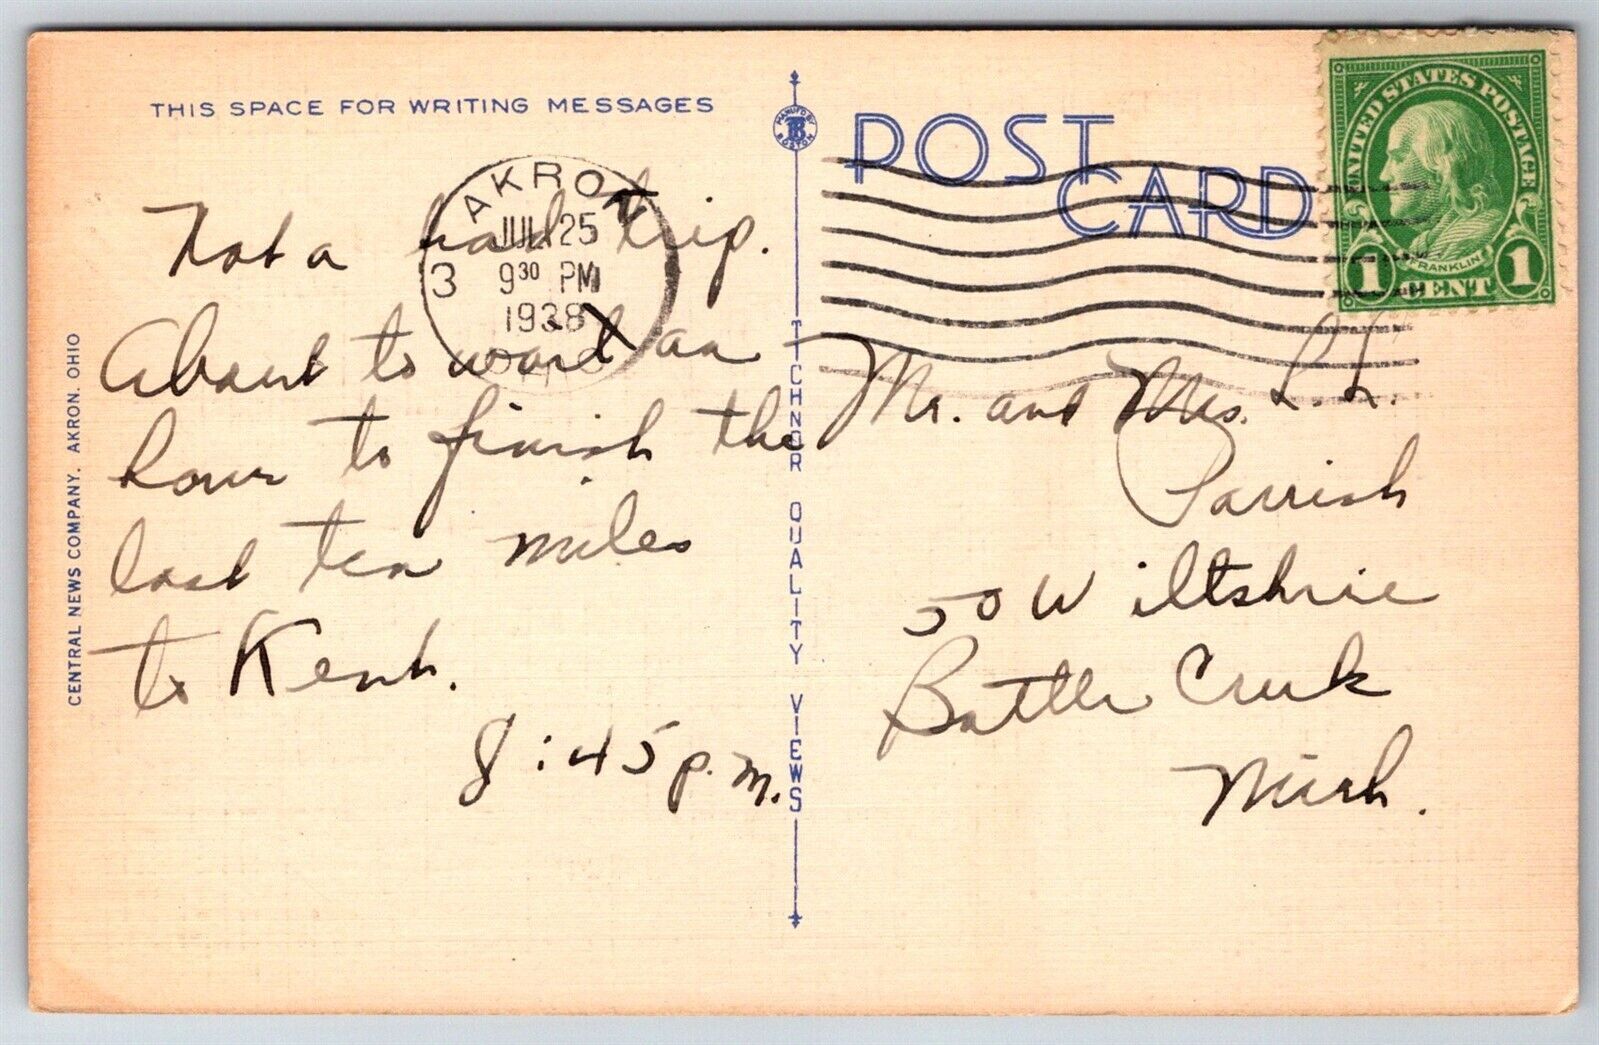 THIS SPACE FOR WRITING MESSAGES
POST CARD
MANUF'D BY
TB
BOSTON
UNITED STATES POSTAGE
FRANKLIN
1 CENT 1
AKRON
JUL 25
3 9 30 PM
1938
OHIO
Not a bad trip.
About to want an
hour to finish the
last ten miles
to Kent.
8:45 p.m.
Mr. and Mrs. L.L.
Parrish
50 Wiltshrie
Battle Creek
Mich.
CENTRAL NEWS COMPANY, AKRON, OHIO
TICHNOR QUALITY VIEWS